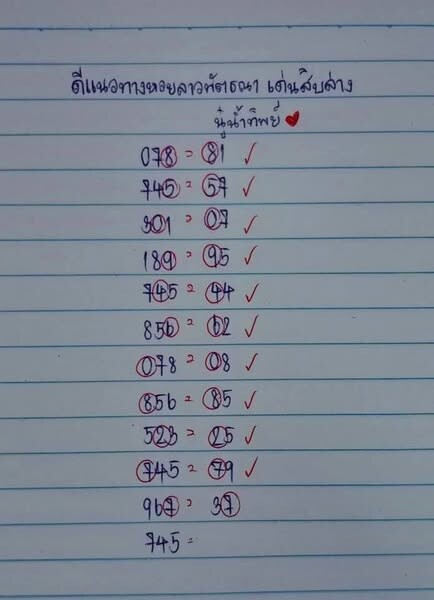 ดีแนวทางหวยลาวพัฒนา เด่นสิบล่าง
นู๋น้ำทิพย์
078 = 81 ✓
745 = 57 ✓
301 = 07 ✓
189 = 95 ✓
745 = 44 ✓
856 = 62 ✓
078 = 08 ✓
856 = 85 ✓
523 = 25 ✓
745 = 79 ✓
967 = 37
745 =